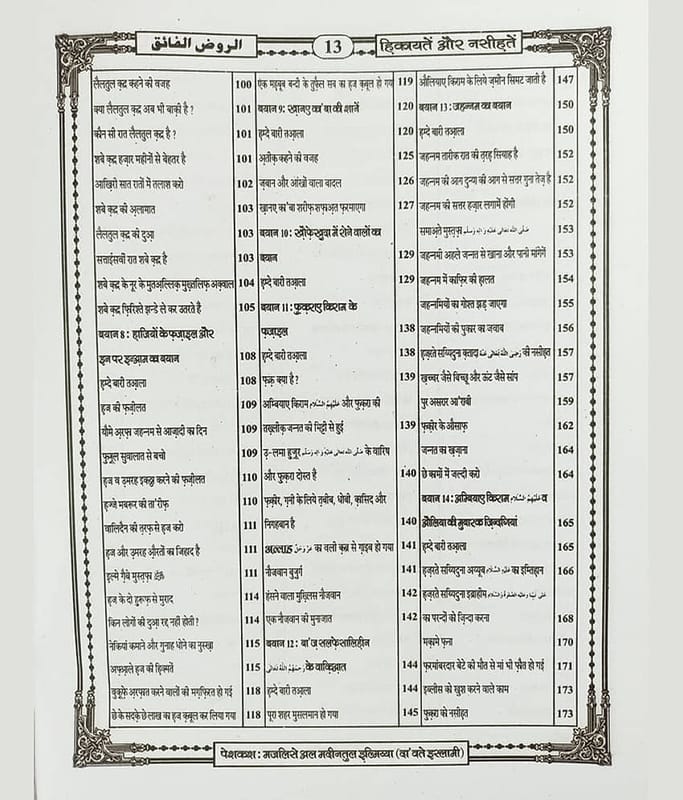 हिकायतें और नसीहतें
13
الروض الفائق
लैलतुल क़द्र कहने की वजह 100
क्या लैलतुल क़द्र अब भी बाक़ी है ? 101
कौन सी रात लैलतुल क़द्र है ? 101
शबे क़द्र हज़ार महीनों से बेहतर है 101
आख़िरी सात रातों में तलाश करो 102
शबे क़द्र की अ़लामात 103
लैलतुल क़द्र की दुआ 103
सत्ताईसवीं रात शबे क़द्र है 103
शबे क़द्र के नूर के मुतअ़ल्लिक़ मुख़्तलिफ़ अक़्वाल 104
शबे क़द्र फ़िरिश्ते झन्डे ले कर उतरते है 105
बयान 8 : हाजियों के फ़ज़ाइल और
इन पर इन्आ़म का बयान
हम्दे बारी तआ़ला 108
हज की फ़ज़ीलत 108
यौमे अ़रफ़ा जहन्नम से आज़ादी का दिन 109
फ़ुज़ूल सुवालात से बचो 109
हज व उ़मरह इकठ्ठा करने की फ़ज़ीलत 109
हज्जे मबरूर की ता'रीफ़ 110
वालिदैन की तरफ़ से हज करो 110
हज और उ़मरह औरतों का जिहाद है 111
इल्मे ग़ैबे मुस्तफ़ा ﷺ 111
हज के दो हुरूफ़ से मुराद 111
किन लोगों की दुआ रद्द नहीं होती ? 114
नेकियां कमाने और गुनाह धोने का नुस्ख़ा 114
अफ़्आ़ले हज की हिक्मतें 115
वुक़ूफ़े अ़रफ़ात करने वालों की मग़्फ़िरत हो गई 115
छे के सदक़े छे लाख का हज क़बूल कर लिया गया 118
118
एक महबूब बन्दी के तुफ़ैल सब का हज क़बूल हो गया 119
बयान 9 : ख़ानए का'बा की शानें 120
हम्दे बारी तआ़ला 120
अ़तीक़ कहने की वजह 125
ज़बान और आंखों वाला बादल 126
ख़ानए का'बा शरीफ़ शफ़ाअ़त फ़रमाएगा 127
बयान 10 : ख़ौफ़े ख़ुदा में रोने वालों का
बयान 129
हम्दे बारी तआ़ला 129
बयान 11 : फ़ुक़राए किराम के
फ़ज़ाइल 138
हम्दे बारी तआ़ला 138
फ़क़्र क्या है ? 139
अम्बियाए किराम عَلَيْهِمُ السَّلَام और फ़ुक़रा की
तख़्लीक़ जन्नत की मिट्टी से हुई 139
उ़-लमा हुज़ूर صَلَّى اللهُ تَعَالٰى عَلَيْهِ وَاٰلِهٖ وَسَلَّم के वारिस
और फ़ुक़रा दोस्त है 140
फ़क़ीर, ग़नी के लिये तबीब, धोबी, क़ासिद और
निगहबान है 140
अल्लाह عَزَّوَجَلَّ का वली क़ब्र से ग़ाइब हो गया 141
नौजवान बुज़ुर्ग 141
हंसने वाला मुख़्लिस नौजवान 142
एक नौजवान की मुनाजात 142
बयान 12 : बा'ज़ सलफ़े सालिहीन
رَحِمَهُمُ اللهُ تَعَالٰى के वाक़िआ़त 144
हम्दे बारी तआ़ला 144
पूरा शहर मुसलमान हो गया 145
औलियाए किराम के लिये ज़मीन सिमट जाती है 147
बयान 13 : जहन्नम का बयान 150
हम्दे बारी तआ़ला 150
जहन्नम तारीक रात की तरह सियाह है 152
जहन्नम की आग दुन्या की आग से सत्तर गुना तेज़ है 152
जहन्नम की सत्तर हज़ार लगामें होंगी 152
समाअ़ते मुस्तफ़ा صَلَّى اللهُ تَعَالٰى عَلَيْهِ وَاٰلِهٖ وَسَلَّم 153
जहन्नमी अहले जन्नत से खाना और पानी मांगेंगे 153
जहन्नम में काफ़िर की हालत 154
जहन्नमियों का गोश्त झड़ जाएगा 155
जहन्नमियों की पुकार का जवाब 156
हज़रते सय्यिदुना क़तादा رَضِيَ اللهُ تَعَالٰى عَنْهُ की नसीहत 157
ख़च्चर जैसे बिच्छू और ऊंट जैसे सांप 157
पुर असरार आ'राबी 159
फ़क़ीर के औसाफ़ 162
जन्नत का ख़ज़ाना 164
छे कामों में जल्दी करो 164
बयान 14 : अम्बियाए किराम عَلَيْهِمُ السَّلَام व
औलिया की मुबारक ज़िन्दगियां 165
हम्दे बारी तआ़ला 165
हज़रते सय्यिदुना अय्यूब عَلَيْهِ السَّلَام का इम्तिहान 166
हज़रते सय्यिदुना इब्राहीम عَلٰى نَبِيِّنَا وَعَلَيْهِ الصَّلٰوةُ وَالسَّلَام
का परन्दों को ज़िन्दा करना 168
मक़ामे फ़ना 170
फ़रमांबरदार बेटे की मौत से मां भी फ़ौत हो गई 171
इब्लीस को ख़ुश करने वाले काम 173
फ़ुक़रा को नसीहत 173
पेशकश : मजलिसे अल मदीनतुल इल्मिय्या (दा'वते इस्लामी)